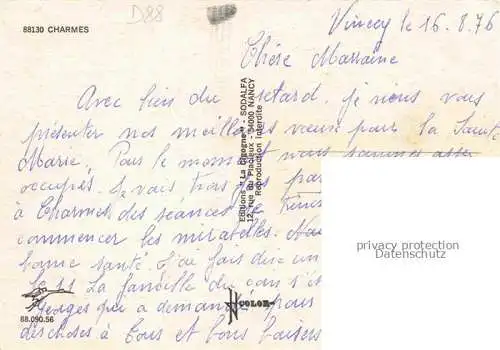 88130 CHARMES
D88
Vincey le 16.8.76
Chère Marraine
Avec bien du retard, je viens vous
présenter nos meilleurs vœux pour la Sainte
Marie. Pour le moment nous sommes assez
occupés. Je vais trois fois par
à Charmes des séances de
commencer les mirabelles. Nous
bonne santé. J'ai fais dire un
le 11 La famille du s'est
Georges qui a demandé nous
des choses à tous et bons baisers
Editions "La Cigogne" - SODALFA
12, rue du Placieux - 54000 NANCY
Reproduction interdite
COLOR
88.090.56
privacy protection
Datenschutz